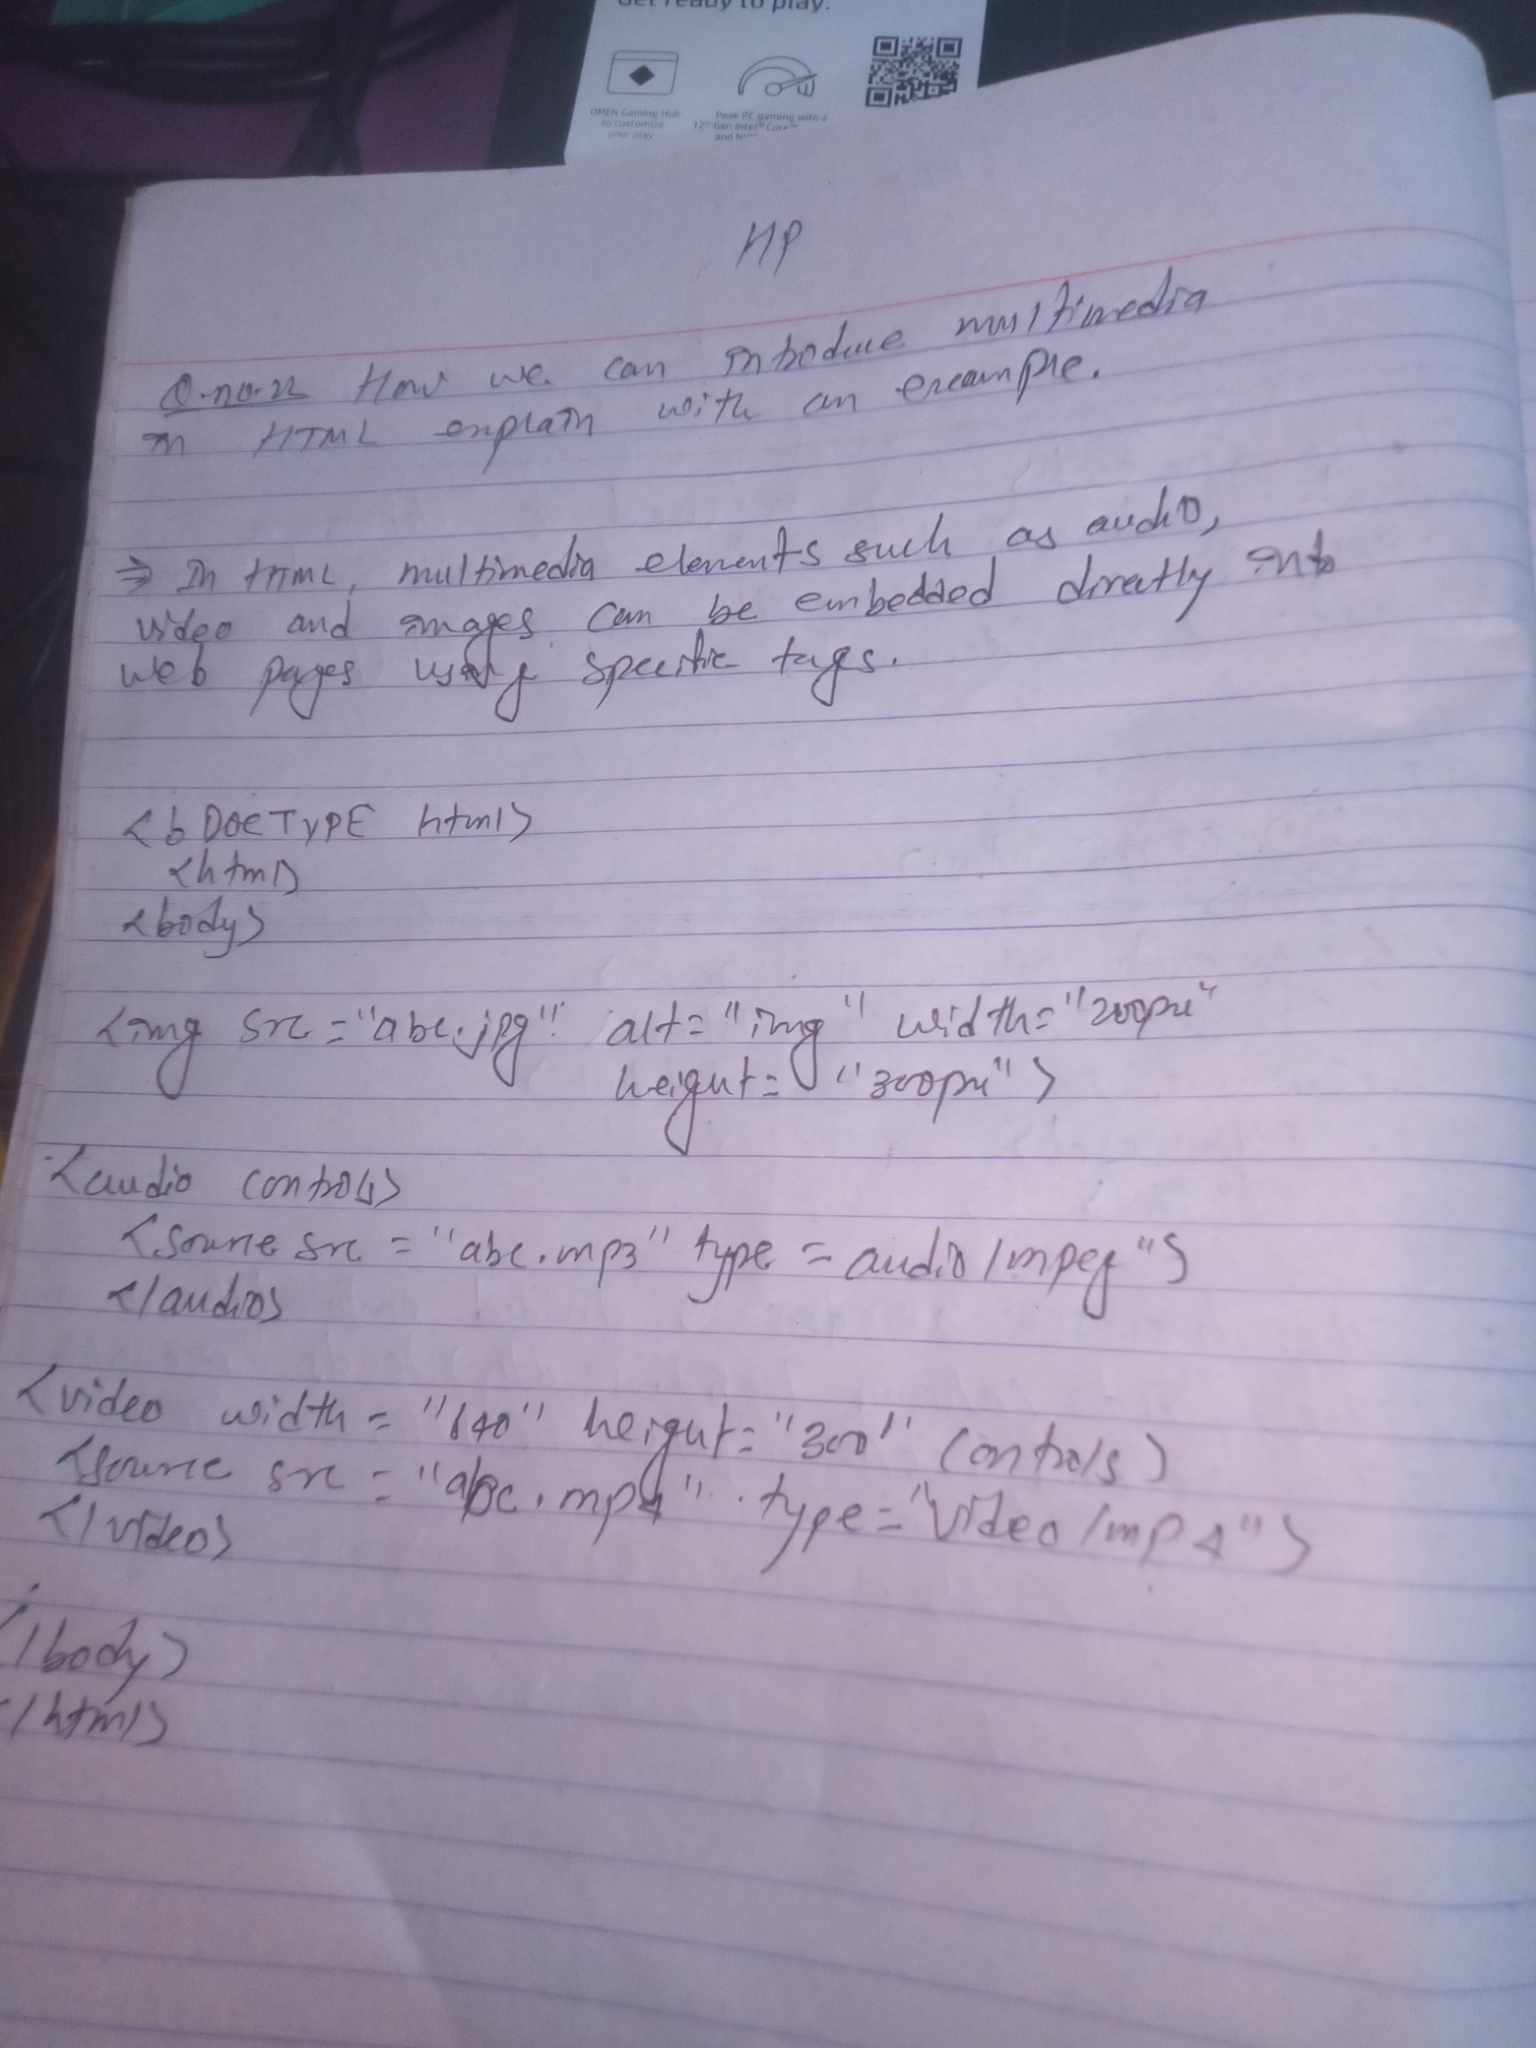 Get ready to play.
OMEN Gaming Hub
to customize
your play
Peak PC gaming with a
12th Gen Intel® Core™
and
HP
Q.no.22 How we can introduce multimedia
in HTML explain with an example.
⇒ In HTML, multimedia elements such as audio,
video and images can be embedded directly into
web pages using specific tags.
<b DOCTYPE html>
<html>
<body>
<img src="abc.jpg" alt="img" width="200px"
height="300px">
<audio controls>
<source src="abc.mp3" type=audio/mpeg">
</audio>
<video width="640" height="300" controls>
<source src="abc.mp4" type="video/mp4">
</video>
</body>
</html>